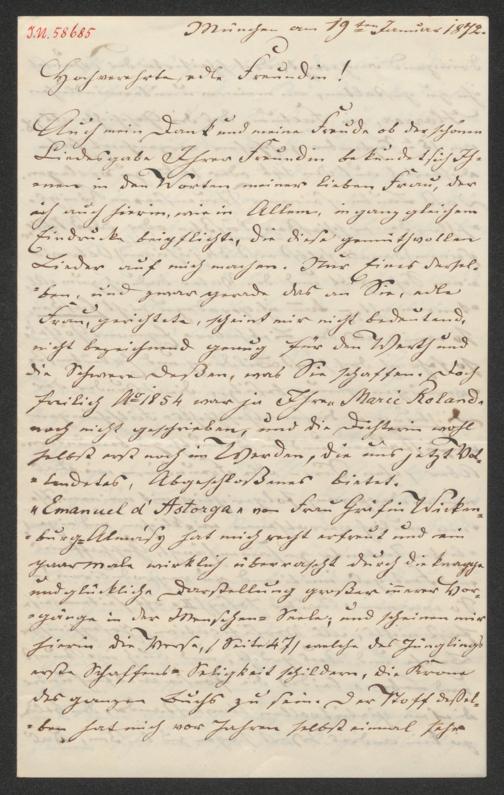 J.N. 58685
München am 19ten Januar 1872.
Hochverehrte, edle Freundin!
Auch mein Dank und meine Freude ob der schönen
Liedesgabe Ihrer Freundin bekundet sich Ih-
nen in den Worten meiner lieben Frau, der
ich auch hierin, wie in Allem, in ganz gleichem
Eindrucke beipflichte, die diese gemüthvollen
Lieder auf mich machen. Nur Eines dersel-
ben, und zwar gerade das an Sie, edle
Frau, gerichtete, scheint mir nicht bedeutend,
nicht bezeichnend genug für den Werth und
die Schwere deßen, was Sie schaffen. Doch
freilich Ao 1854 war ja Ihre "Marie Roland"
noch nicht geschrieben, und die Dichterin wohl
selbst erst noch im Werden, die uns jetzt Vol-
lendetes, Abgeschloßenes bietet.
"Emanuel d'Astorga" von Frau Gräfin Wicken-
burg-Almásy hat mich recht erfreut und ein
paar male wirklich überrascht durch die knappe
und glückliche Darstellung großer innerer Vor-
gänge in der Menschen-Seele; und scheinen mir
hierin die Verse, (Seite 47) welche des Jünglings
erste Schaffens-Seligkeit schildern, die Krone
des ganzen Buchs zu sein. Der Stoff deßel-
ben hat mich vor Jahren selbst einmal sehr